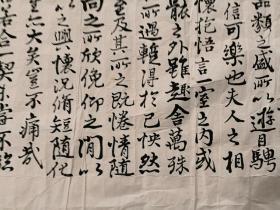 品類之盛所以遊目騁
信可樂也夫人之相
懷抱悟言一室之内或
骸之外雖趣舍萬殊
所遇蹔得於己怏然
至及其所之既惓情隨
向之所欣俛仰之閒以
以之興懷況脩短隨化
生亦大矣豈不痛哉
若合一契未嘗不臨